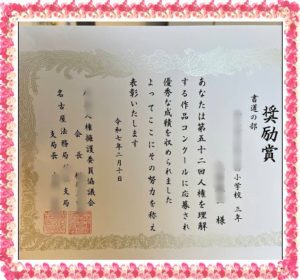 奨励賞
書道の部
小学校 三年
様
あなたは第五十二回人権を理解
する作品コンクールに応募され
優秀な成績を収められました
よってここにその努力を称え
表彰いたします
令和七年二月十日
人権擁護委員協議会
会長
名古屋法務局 支局
支局長